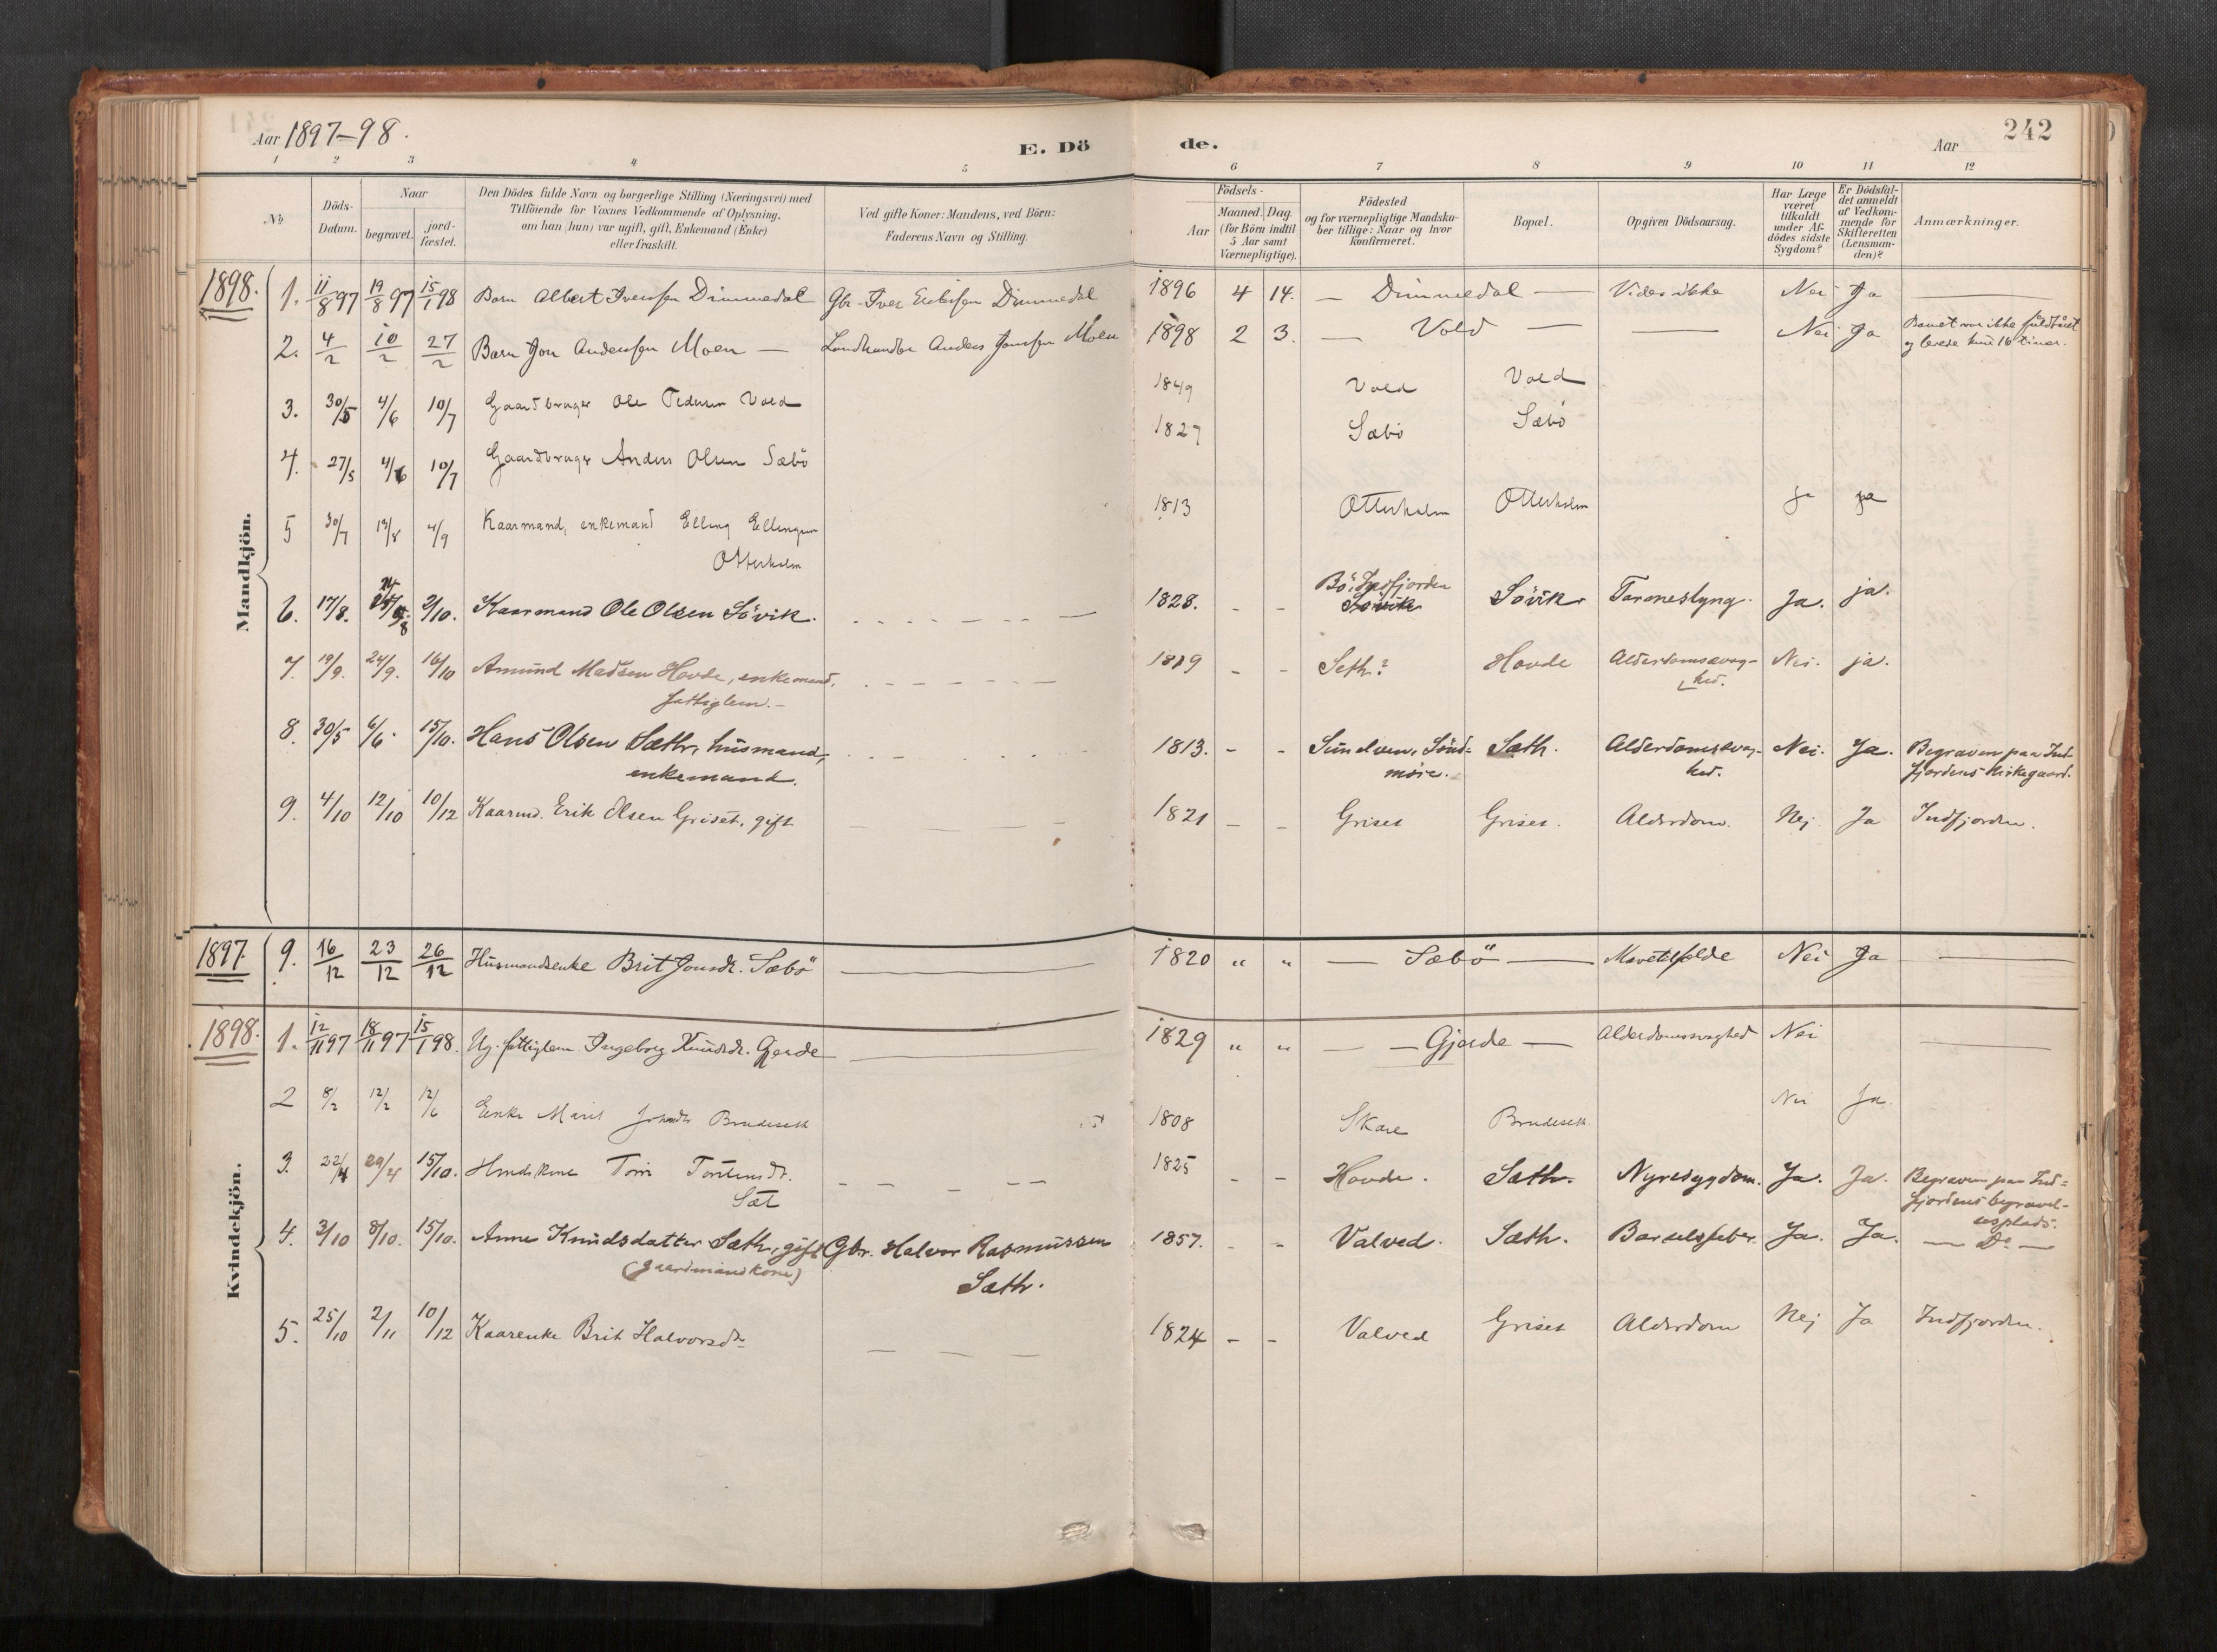 Aar 1897-98.
E. Dö
de.
Aar
242
1 2 3 4 5 6 7 8 9 10 11 12
No
Döds-Datum.
Naar
begravet.
jord-fæstet.
Den Dödes fulde Navn og borgerlige Stilling (Næringsvei) med
Tilföiende for Voxnes Vedkommende af Oplysning,
om han (hun) var ugift, gift, Enkemand (Enke)
eller fraskilt.
Ved gifte Koner: Mandens, ved Börn:
Faderens Navn og Stilling.
Födsels-
Aar
Maaned. Dag.
(for Börn indtil
5 Aar samt
Værnepligtige).
Födested
og for værnepligtige Mandska-
ber tillige: Naar og hvor
konfirmeret.
Bopæl.
Opgiven Dödsaarsag.
Har Læge
været
tilkaldt
under Af-
dödes sidste
Sygdom?
Er Dödsfal-
det anmeldt
af Vedkom-
mende for
Skifteretten
(Lensman-
den)?
Anmærkninger.
Mandkjön.
1898. 1. 11/8 97 19/8 97 15/1 98 Barn Albert Iversen Dimmedal Gbr. Iver Eriksen Dimmedal 1896 4 14. — Dimmedal — Vides ikke Nei Ja —
2. 4/2 10/2 27/2 Barn Jon Andersen Moen — Landhandler Anders Jonsen Moen 1898 2 3. — Vold — — Nei Ja Barnet var ikke fuldbåret
og levede kun 16 timer.
3. 30/5 4/6 10/7 Gaardbruger Ole Pedersen Vold 1849 Vold Vold
4. 27/5 4/6 10/7 Gaardbruger Anders Olsen Sæbö 1827 Sæbö Sæbö
5 30/7 13/8 4/9 Kaarmand, enkemand Elling Ellingsen
Otterholm 1813 Otterholm Otterholm ja ja
6. 17/8. 2/10. Kaarmand Ole Olsen Sövik. 1828. - - Bö, Indfjorden
Sövik Sövik. Tarmeslyng. Ja. ja.
7. 19/9. 24/9. 16/10 Amund Madsen Hovde, enkemand,
fattiglem. - 1819 - - Seth? Hovde Alderdomssvag-
hed. Nei. ja.
8. 30/5 6/6. 15/10. Hans Olsen Sæth, husmand,
enkemand. 1813. - - Sunelven, Sönd=
möre. Sæth. Alderdomssvag-
hed. Nei. Ja. Begraven paa Ind-
fjordens Kirkegaard.
9. 4/10 12/10 10/12 Kaarmd. Erik Olsen Griset, gift 1821 - - Griset Griset. Alderdom. Nej Ja Indfjorden.
Kvindekjön.
1897. 9. 16/12 23/12 26/12 Husmandsenke Brit Jonsdr. Sæbö — 1820 " " — Sæbö — Mavetilfælde Nei Ja —
1898. 1. 12/11 97 18/11 97 15/1 98. Ug. fattiglem Ingeborg Knudsdr. Gjerde — 1829 " " — Gjerde — Alderdomssvaghed Nei —
2 8/2 12/2 12/6 Enke Marit Brudeseth 1808 Skare Brudeseth Nei Ja.
3. 22/4 29/4 15/10. Torstensdr.
Sæt 1825 - - Hovde. Sæth. Nyresygdom. Ja. Ja. Begraven paa Ind=
fjordens begravel-
sesplads.
4. 3/10 8/10. 15/10. Anne Knudsdatter Sæth, gift Gbr. Halvor Rasmussen
(gaardmandkone) Sæth. 1857. - - Valved. Sæth. Barselsfeber. Ja. Ja. — Do —
5. 25/10 2/11 10/12 Kaarenke Brit Halvorsdr. 1824 - - Valved Griset Alderdom Nej Ja Indfjorden.